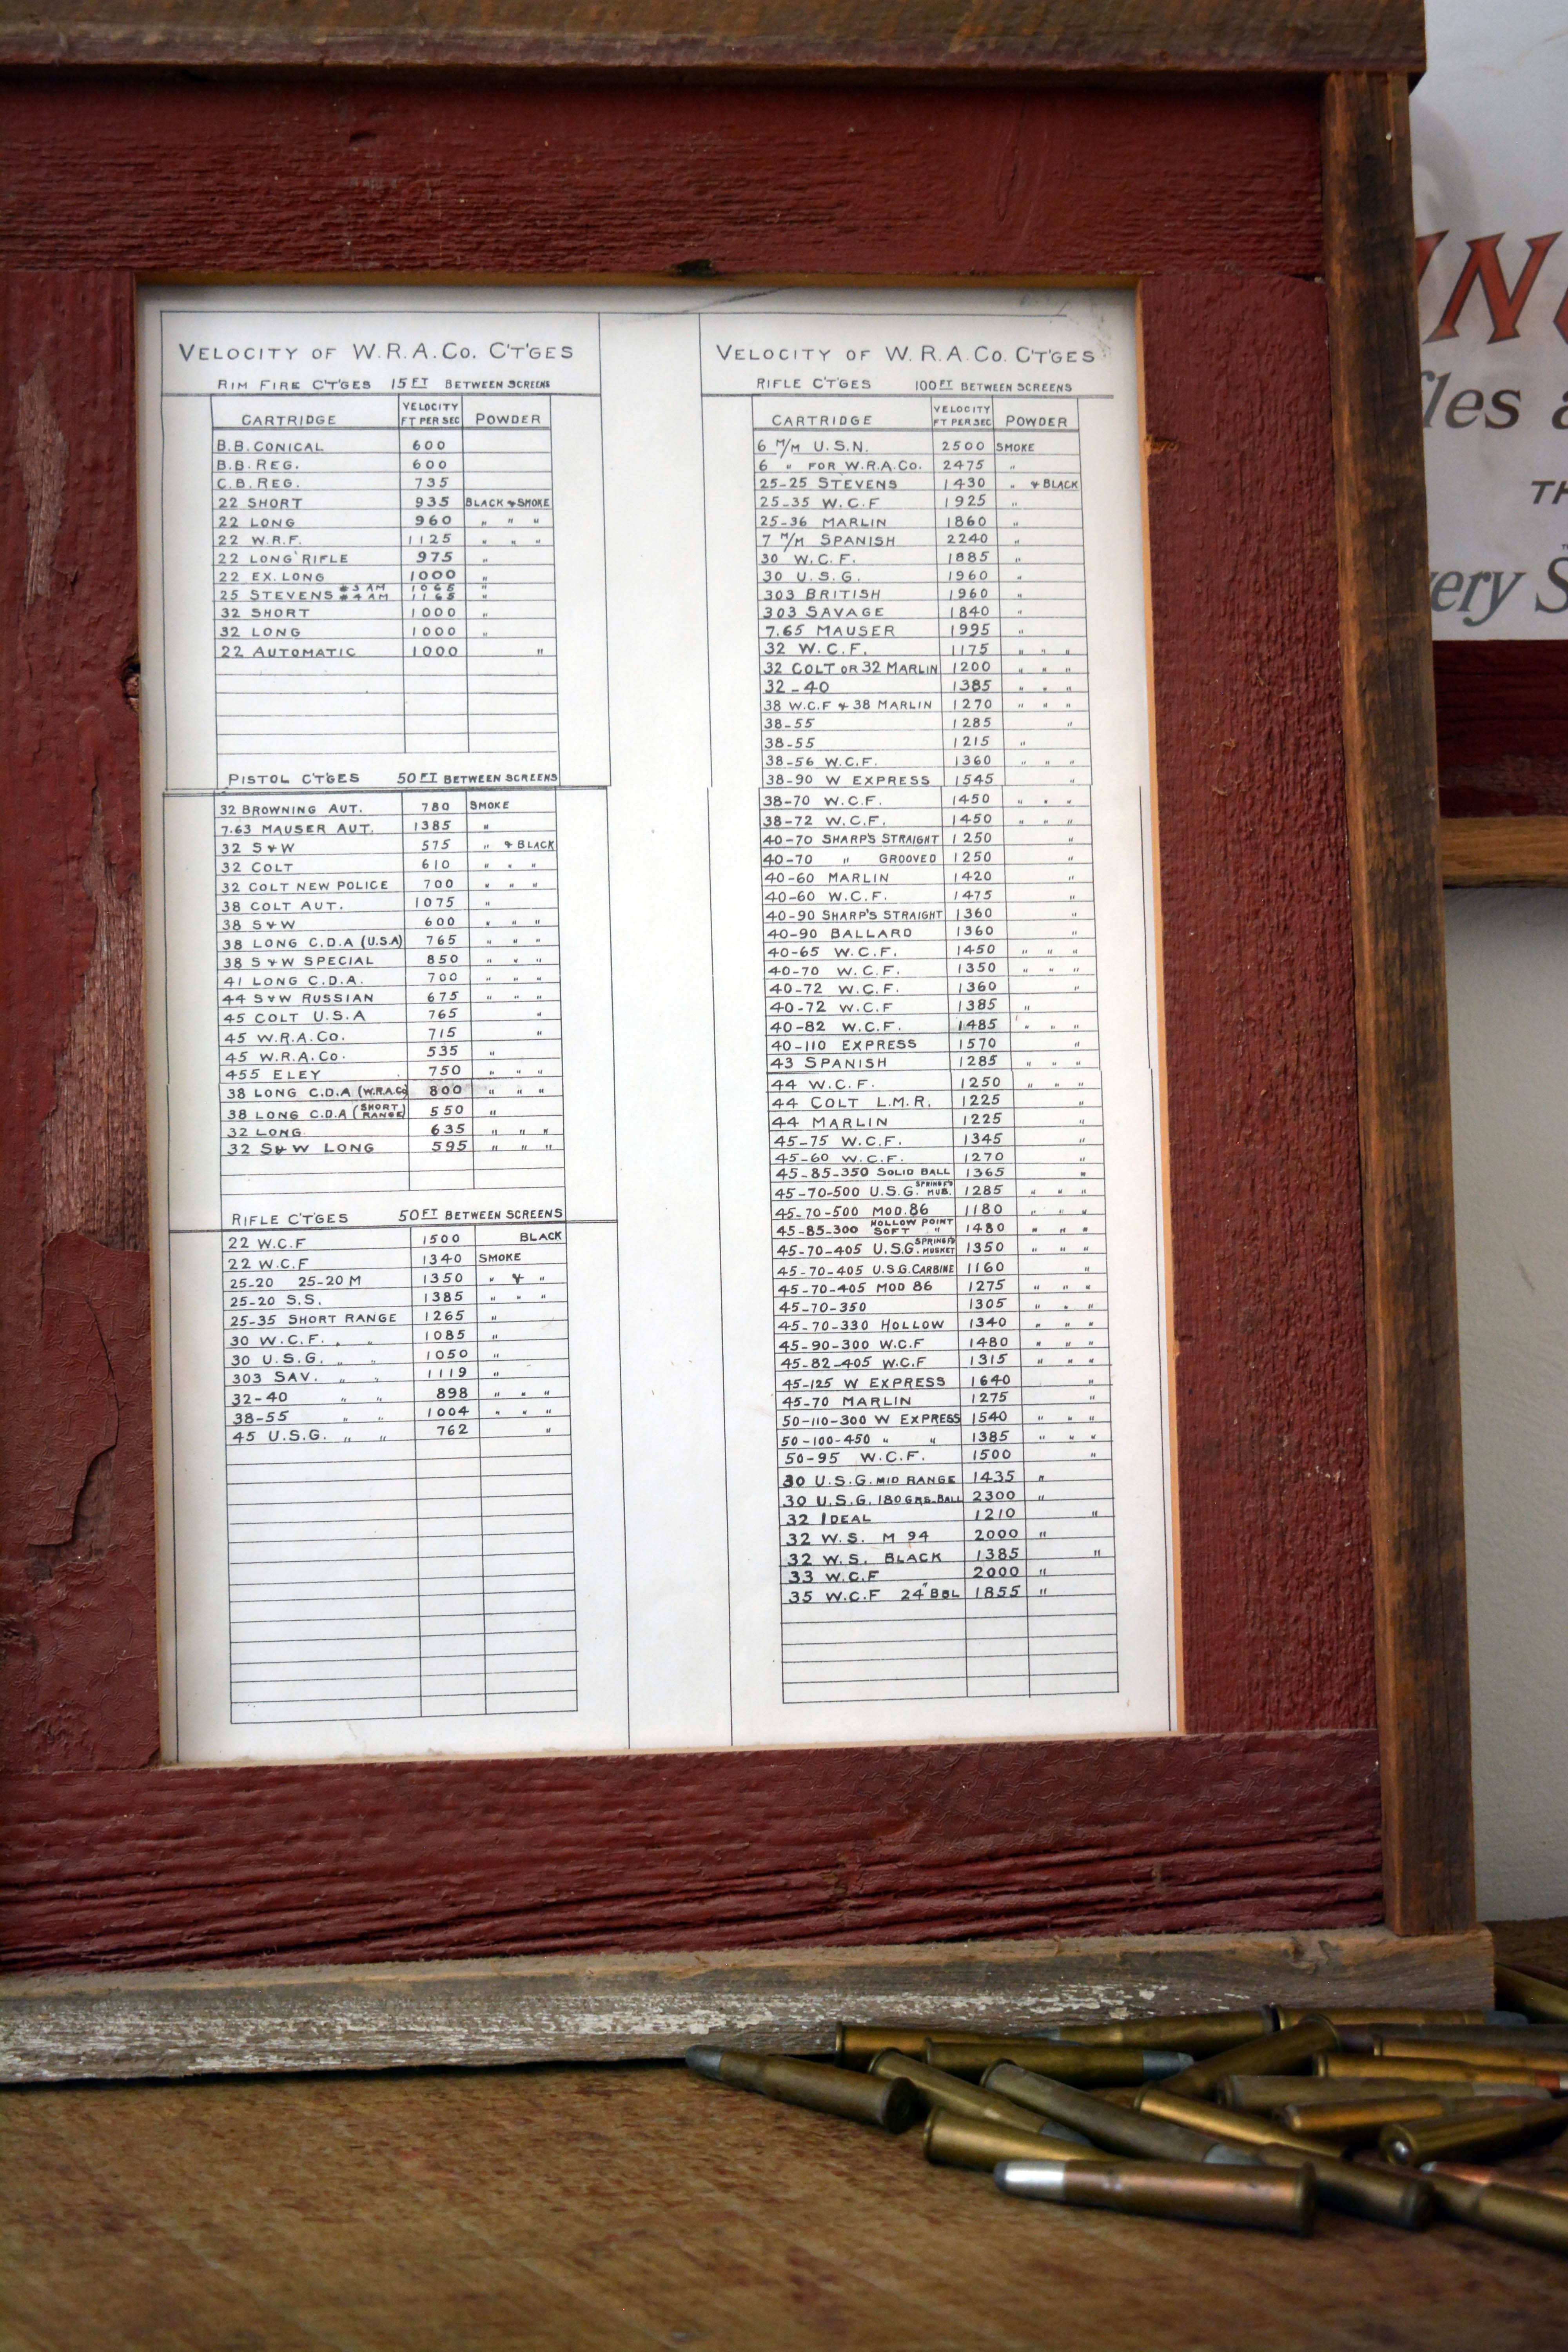 VELOCITY OF W.R.A.CO. C'T'GES
RIM FIRE C'T'GES 15 FT BETWEEN SCREENS
CARTRIDGE VELOCITY FT PER SEC POWDER
B.B. CONICAL 600
B.B. REG. 600
C.B. REG. 735
22 SHORT 935 BLACK & SMOKE
22 LONG 960 " " "
22 W.R.F. 1125 " " "
22 LONG RIFLE 975 "
22 EX. LONG 1000 "
25 STEVENS #3 AM 1065 "
#4 AM 1165 "
32 SHORT 1000 "
32 LONG 1000 "
22 AUTOMATIC 1000 "
PISTOL C'T'GES 50 FT BETWEEN SCREENS
32 BROWNING AUT. 780 SMOKE
7.63 MAUSER AUT. 1385 "
32 S&W 575 " & BLACK
32 COLT 610 " " "
32 COLT NEW POLICE 700 " " "
38 COLT AUT. 1075 "
38 S&W 600 " " "
38 LONG C.D.A (U.S.A) 765 " " "
38 S&W SPECIAL 850 " " "
41 LONG C.D.A. 700 " " "
44 S&W RUSSIAN 675 " " "
45 COLT U.S.A 765 "
45 W.R.A.CO. 715 "
45 W.R.A.CO. 535 "
455 ELEY 750 " " "
38 LONG C.D.A (W.R.A.CO) 800 " " "
38 LONG C.D.A (SHORT RANGE) 550 "
32 LONG 635 " " "
32 S&W LONG 595 " " "
RIFLE C'T'GES 50 FT BETWEEN SCREENS
22 W.C.F 1500 BLACK
22 W.C.F 1340 SMOKE
25-20 25-20 M 1350 " & "
25-20 S.S. 1385 " " "
25-35 SHORT RANGE 1265 "
30 W.C.F. " " 1085 "
30 U.S.G. " " 1050 "
303 SAV. " " 1119 "
32-40 " " 898 " " "
38-55 " " 1004 " " "
45 U.S.G. " " 762 "
VELOCITY OF W.R.A.CO. C'T'GES
RIFLE C'T'GES 100 FT BETWEEN SCREENS
CARTRIDGE VELOCITY FT PER SEC POWDER
6 M/M U.S.N. 2500 SMOKE
6 " FOR W.R.A.CO. 2475 "
25-25 STEVENS 1430 " & BLACK
25-35 W.C.F 1925 "
25-36 MARLIN 1860 "
7 M/M SPANISH 2240 "
30 W.C.F. 1885 "
30 U.S.G. 1960 "
303 BRITISH 1960 "
303 SAVAGE 1840 "
7.65 MAUSER 1995 "
32 W.C.F. 1175 " " "
32 COLT OR 32 MARLIN 1200 " " "
32-40 1385 " " "
38 W.C.F & 38 MARLIN 1270 " " "
38-55 1285 "
38-55 1215 "
38-56 W.C.F. 1360 " " "
38-90 W EXPRESS 1545 "
38-70 W.C.F. 1450 " " "
38-72 W.C.F. 1450 " " "
40-70 SHARP'S STRAIGHT 1250 "
40-70 " GROOVED 1250 "
40-60 MARLIN 1420 "
40-60 W.C.F. 1475 "
40-90 SHARP'S STRAIGHT 1360 "
40-90 BALLARD 1360 "
40-65 W.C.F. 1450 " " "
40-70 W.C.F. 1350 " " "
40-72 W.C.F. 1360 "
40-72 W.C.F 1385 "
40-82 W.C.F. 1485 " " "
40-110 EXPRESS 1570 "
43 SPANISH 1285 " " "
44 W.C.F. 1250 " " "
44 COLT L.M.R. 1225 "
44 MARLIN 1225 "
45-75 W.C.F. 1345 "
45-60 W.C.F. 1270 "
45-85-350 SOLID BALL 1365 "
45-70-500 U.S.G. SPRINGF'D MUS. 1285 " " "
45-70-500 MOD.86 1180 " " "
45-85-300 HOLLOW POINT SOFT " 1480 " " "
45-70-405 U.S.G. SPRINGF'D MUSKET 1350 " " "
45-70-405 U.S.G. CARBINE 1160 "
45-70-405 MOD 86 1275 " " "
45-70-350 1305 " " "
45-70-330 HOLLOW 1340 " " "
45-90-300 W.C.F 1480 " " "
45-82-405 W.C.F 1315 " " "
45-125 W EXPRESS 1640 "
45-70 MARLIN 1275 "
50-110-300 W EXPRESS 1540 " " "
50-100-450 " " 1385 " " "
50-95 W.C.F. 1500 "
30 U.S.G. MID RANGE 1435 "
30 U.S.G. 180 GRS. BALL 2300 "
32 IDEAL 1210 "
32 W.S. M 94 2000 "
32 W.S. BLACK 1385 "
33 W.C.F 2000 "
35 W.C.F 24" BBL 1855 "